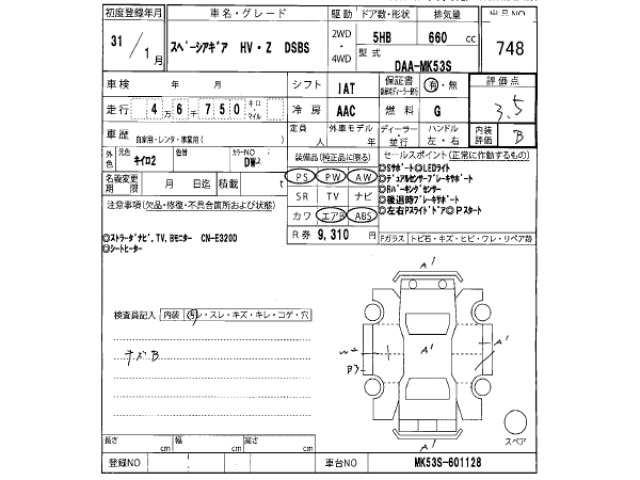 初度登録年月 車名・グレード 駆動 ドア数・形状 排気量 出品NO
31 / 1月 スペーシアギア HV・Z DSBS 2WD・4WD 5HB 660 cc 748
型式 DAA-MK53S
車検 年 月 シフト IAT 保証書 有・無 評価点
走行 4万6千750 キロ マイル 冷房 AAC 燃料 G 3.5
車歴 自家用・レンタ・事業用( ) 定員 人 外車モデル 年 ディーラー・並行 ハンドル 左・右 内装評価 B
外色 元色 キイロ2 色替 カラーNO DW2
装備品(純正品に限る) セールスポイント(正常に作動するもの)
名義変更期限 月 日迄 積載 t
PS PW AW
SR TV ナビ
カワ エアB ABS
R券 9,310 円
◎Sサポート◎LEDライト
◎デュアルセンサーブレーキサポート
◎Rパーキングセンサー
◎後退時ブレーキサポート
◎左右Pスライドドア◎Pスタート
注意事項(欠品・修復・不具合箇所および状態)
◎ストラーダナビ,TV,Bモニター CN-E320D
◎シートヒーター
Fガラス トビ石・キズ・ヒビ・ワレ・リペア跡
検査員記入 内装 汚レ・スレ・キズ・キレ・コゲ・穴
キズB
A1
A1
A1
B3
A1
スペア
長さ cm 幅 cm 高さ cm
登録NO 車台NO MK53S-601128